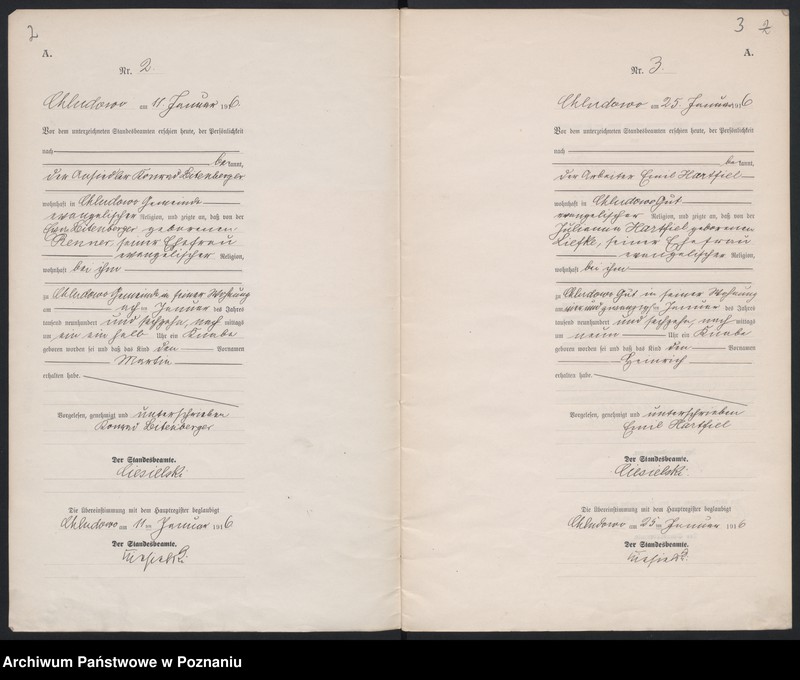 2
A.
Nr. 2.
Chludowo am 11 Januar 1916.
Vor dem unterzeichneten Standesbeamten erschien heute, der Persönlichkeit
nach
bekannt,
der Ansiedler Konrad Litenberger
wohnhaft in Chludowo Gemeinde
evangelischer Religion, und zeigte an, daß von der
Litenberger geborenen
Renner, seiner Ehefrau
evangelischer Religion,
wohnhaft bei ihm
zu Chludowo Gemeinde in seiner Wohnung
am achten Januar des Jahres
tausend neunhundert und sechzehn, nachmittags
um ein ein halb Uhr ein Knabe
geboren worden sei und daß das Kind den Vornamen
Martin
erhalten habe.
Vorgelesen, genehmigt und unterschrieben
Konrad Litenberger
Der Standesbeamte.
Ciesielski
Die Übereinstimmung mit dem Hauptregister beglaubigt
Chludowo am 11 ten Januar 1916
Der Standesbeamte.
Ciesielski
3 2
A.
Nr. 3.
Chludowo am 25. Januar 1916
Vor dem unterzeichneten Standesbeamten erschien heute, der Persönlichkeit
nach
bekannt,
der Arbeiter Emil Hartfiel
wohnhaft in Chludowo Gut
evangelischer Religion, und zeigte an, daß von der
Julianne Hartfiel geborenen
Liefke, seiner Ehefrau
evangelischer Religion,
wohnhaft bei ihm
zu Chludowo Gut in seiner Wohnung
am vier und zwanzigsten Januar des Jahres
tausend neunhundert und sechzehn, nachmittags
um neun Uhr ein Knabe
geboren worden sei und daß das Kind den Vornamen
Heinrich
erhalten habe.
Vorgelesen, genehmigt und unterschrieben
Emil Hartfiel
Der Standesbeamte.
Ciesielski
Die Übereinstimmung mit dem Hauptregister beglaubigt
Chludowo am 25 ten Januar 1916
Der Standesbeamte.
Ciesielski
Archiwum Państwowe w Poznaniu